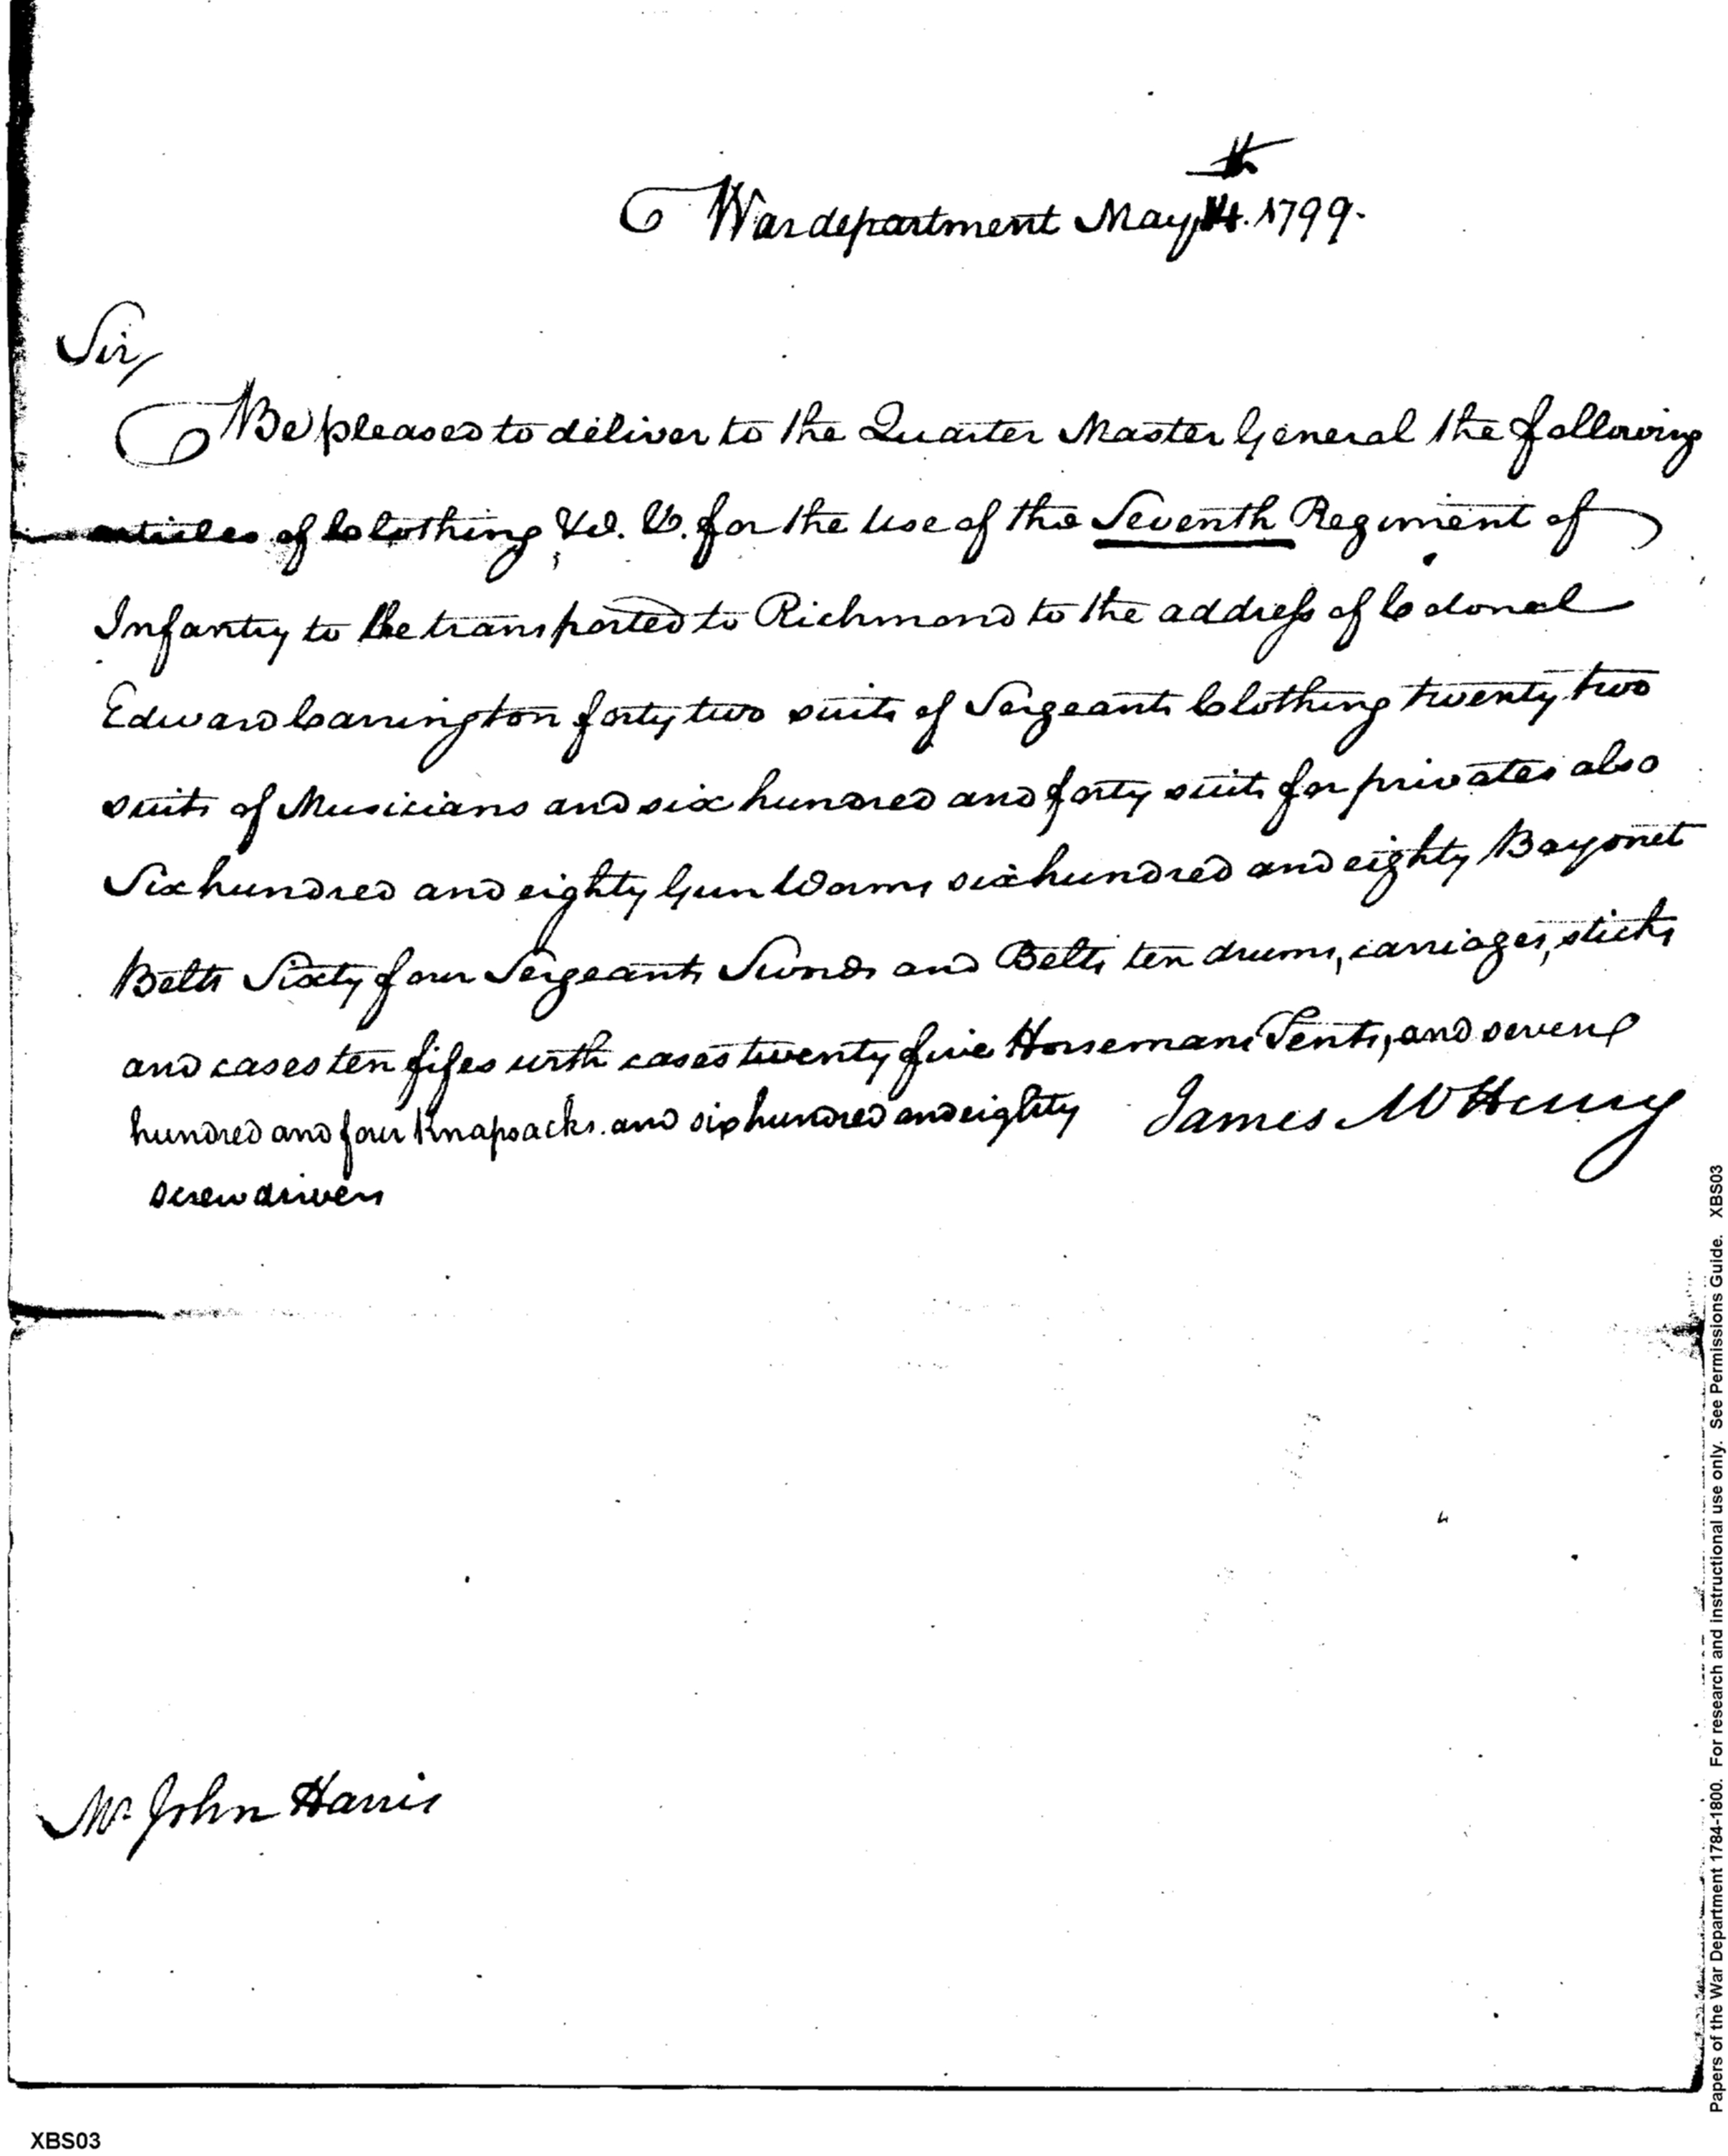 War department May 14th. 1799.
Sir,
Be pleased to deliver to the Quarter Master General the following
articles of Clothing &c. &. for the use of the Seventh Regiment of
Infantry to be transported to Richmond to the address of Colonel
Edward Carrington forty two suits of Sergeants Clothing twenty two
suits of Musicians and six hundred and forty suits for privates also
Six hundred and eighty Gun Worms six hundred and eighty Bayonet
Belts Sixty four Sergeants Swords and Belts ten drums, carriages, sticks
and cases ten fifes with cases twenty five Horsemans Tents, and seven
hundred and four Knapsacks. and six hundred and eighty
screw drivers
James McHenry
Mr John Harris
XBS03
Papers of the War Department 1784-1800. For research and instructional use only. See Permissions Guide. XBS03